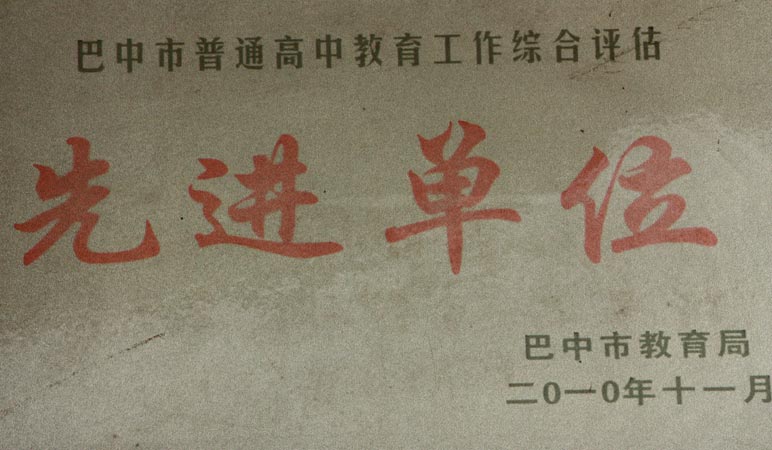 巴中市普通高中教育工作综合评估
先进单位
巴中市教育局
二0一0年十一月